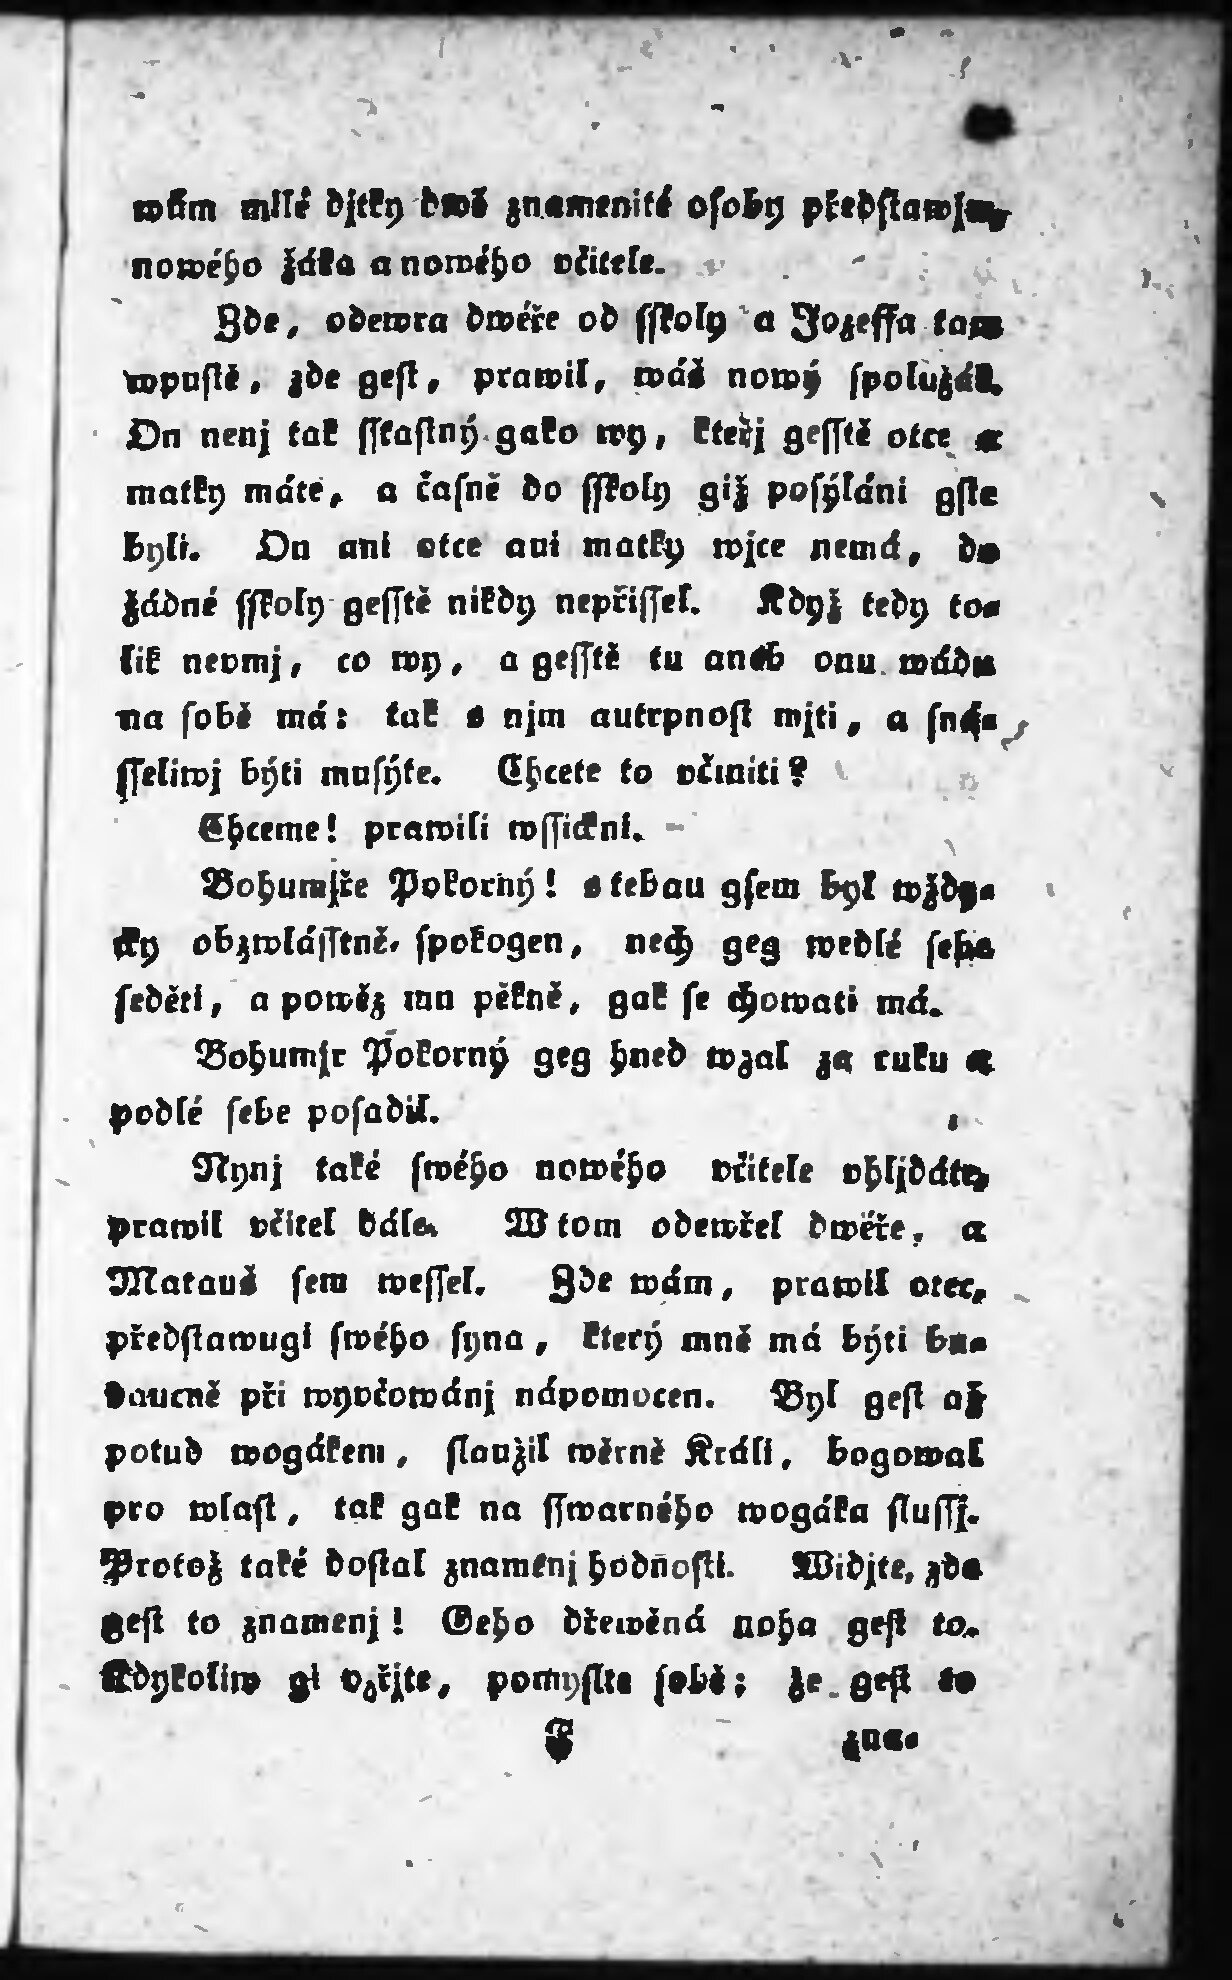 wám milé djtky dwě znamenité osoby předſtawjm,
nowého žáka a nowého včitele.
Zde, odewra dwéře od ſſkoly a Jozeffa tam
wpuſtě, zde geſt, prawil, wáš nowý ſpolužák.
On nenj tak ſſťaſtný gako wy, kteřj geſſtě otce a
matky máte, a čaſně do ſſkoly giž poſýláni gſte
byli. On ani otce ani matky wjce nemá, do
žádné ſſkoly geſſtě nikdy nepřiſſel. Když tedy to-
lik nevmj, co wy, a geſſtě tu aneb onu wádu
na ſobě má: tak s njm autrpnoſt mjti, a ſná-
ſſeliwj býti muſýte. Chcete to včiniti?
Chceme! prawili wſſickni.
Bohumjře Pokorný! s tebau gſem byl wždy-
cky obzwláſſtně ſpokogen, nech geg wedlé ſebe
ſeděti, a powěz mu pěkně, gak ſe chowati má.
Bohumjr Pokorný geg hned wzal za ruku a
podlé ſebe poſadil.
Nynj také ſwého nowého včitele vhljdáte,
prawil včitel dále. W tom odewřel dwéře, a
Matauš ſem weſſel. Zde wám, prawil otec,
předſtawugi ſwého ſyna, který mně má býti bu-
daucně při wyvčowánj nápomocen. Byl geſt až
potud wogákem, ſlaužil wěrně Králi, bogowal
pro wlaſt, tak gak na ſſwarného wogáka ſluſſj.
Protož také doſtal znamenj hodnoſti. Widjte, zde
geſt to znamenj! Geho dřewěná noha geſt to.
Kdykoliw gi vzřjte, pomyſlte ſobě; že geſt to
T zna-